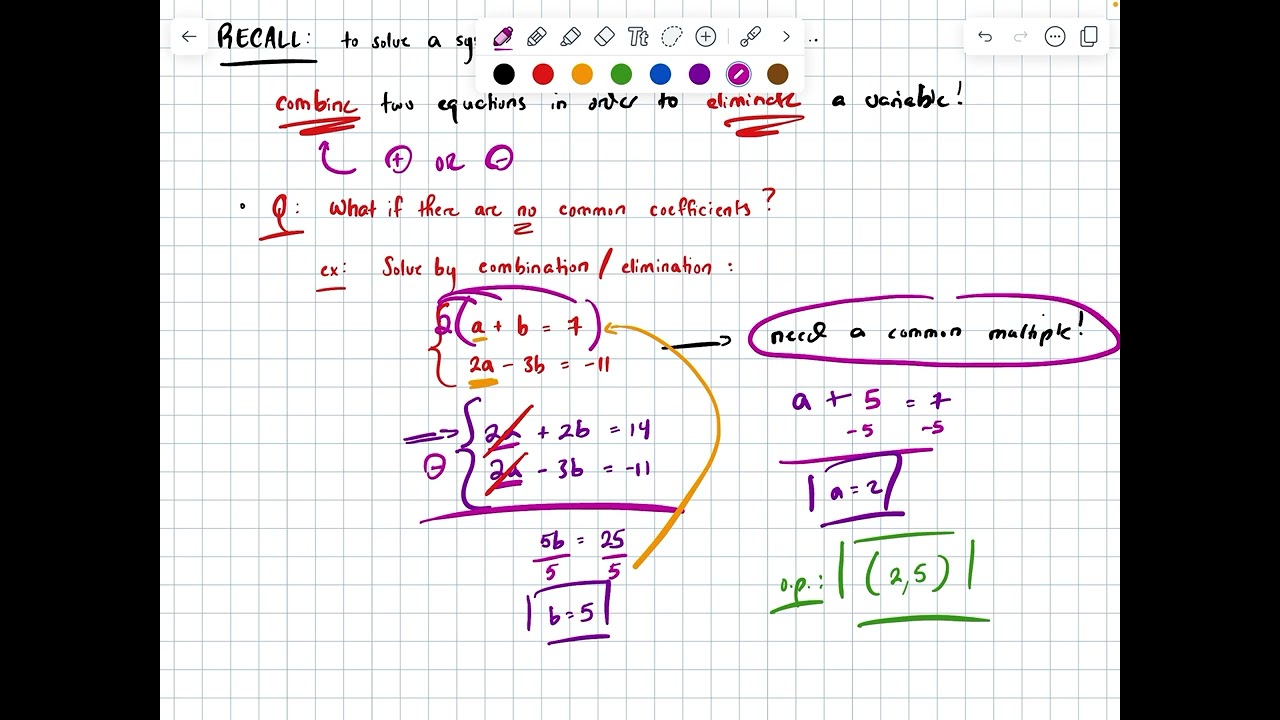 RECALL: to solve a sy ..
Tt
combine two equations in order to eliminate a variable!
+ OR -
Q: What if there are no common coefficients?
ex: Solve by combination / elimination :
2(a + b = 7)
need a common multiple!
2a - 3b = -11
2a + 2b = 14
- 2a - 3b = -11
5b = 25
5 5
b = 5
a + 5 = 7
-5 -5
a = 2
o.p.: (2,5)